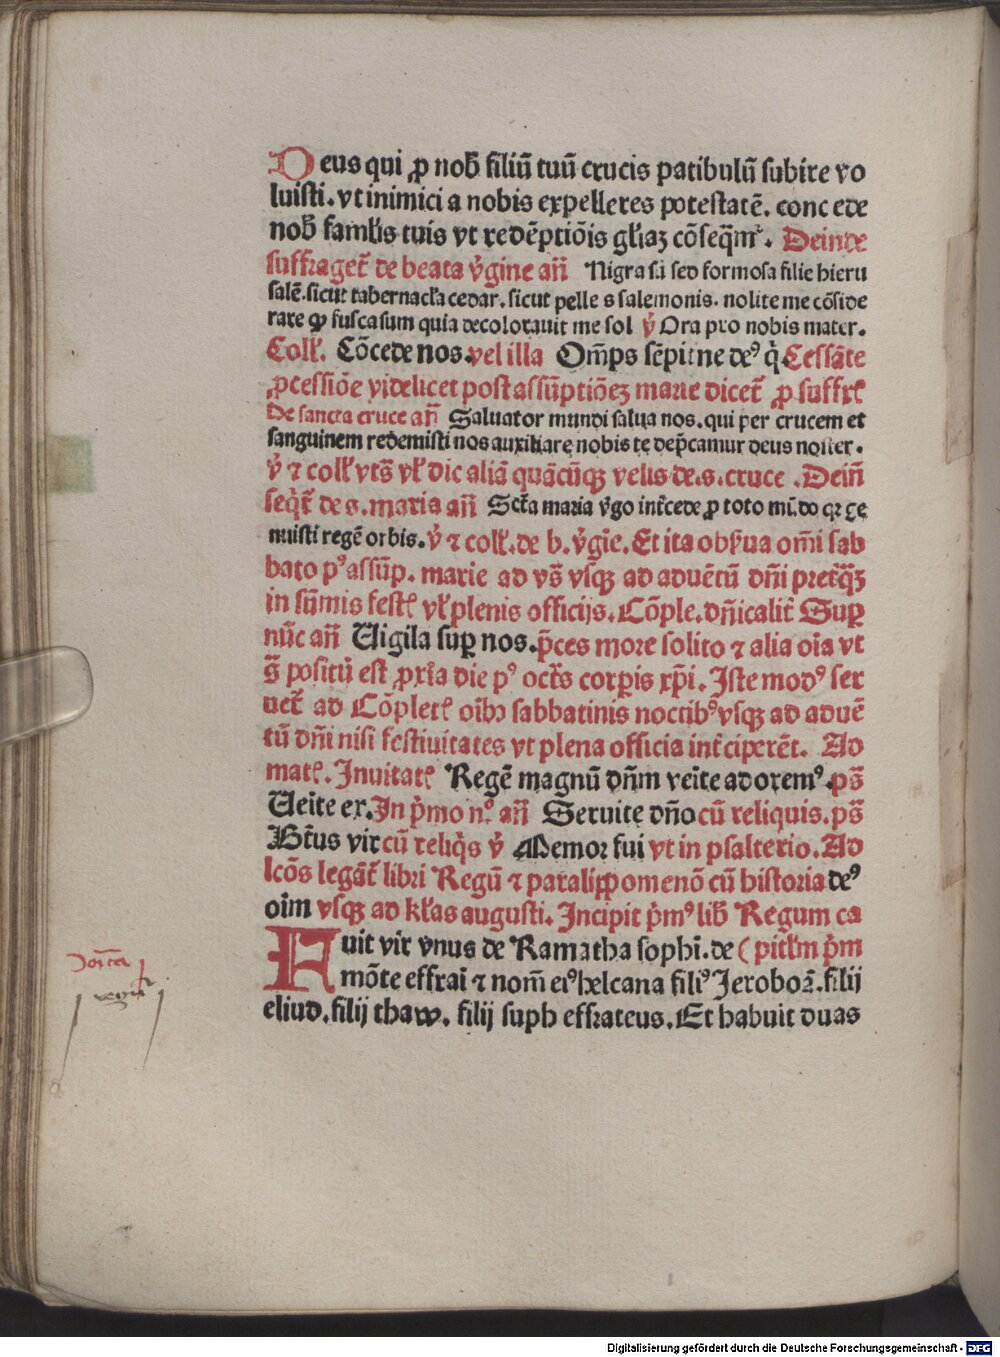 Deus qui ꝓ nob̄ filiū tuū crucis patibulū subire vo
luisti. vt inimici a nobis expelleres potestatē. concede
nob̄ famłis tuis vt redēptiōis gr̄iaꝫ cōseq̄mᷣ. Deinde
suffraget᷑ de beata ꝟgine an̄ Nigra sū sed formosa filie hieru
salē. sicut tabernacła cedar. sicut pelles salemonis. nolite me cōside
rare ꝙ fusca sum quia decolorauit me sol ꝟ Ora pro nobis mater.
Colł. Cōcede nos. vel illa Om̄ps sēpitne deꝰ q̇ Cessāte
ꝓcessiōe videlicet post assūptiōeꝫ marie dicet᷑ ꝓ suffrł
De sancta cruce an̄ Saluator mundi salua nos. qui per crucem et
sanguinem redemisti nos auxiliare nobis te dep̄camur deus noster.
ꝟ ⁊ colł vts̄ vł dic aliā quācūqꝫ velis de. s. cruce. Dein̄
seq̇t᷑ de s. maria an̄ Sct̄a maria ꝟgo int̄cede ꝓ toto mūdo qꝛ ge
nuisti regē orbis. ꝟ ⁊ colł. de b. ꝟgīe. Et ita obẜua om̄i sab
bato pꝰ assūp. marie ad vs̄ vsqꝫ ad aduētū dn̄i pret̄q̄ꝫ
in sūmis festꝭ vł plenis officijs. Cōple. dn̄icalit̄ Suꝑ
nūc an̄ Uigila suꝑ nos. p̄ces more solito ⁊ alia oīa vt
s̄ positū est ꝓxīa die pꝰ oct̄s corꝑis xp̄i. Iste modꝰ ser
uet᷑ ad Cōpletꝭ oībꝫ sabbatinis noctibꝰ vsqꝫ ad aduē
tū dn̄i nisi festiuitates vt plena officia int̄ciperēt. Ad
matꝭ. Inuitatꝭ Regē magnū dn̄m veīte adoremꝰ. ps̄
Ueīte ex. In p̄mo nꝰ. an̄ Seruite dn̄o cū reliquis. ps̄
Bt̄us vir cū reliq̇s ꝟ Memor fui vt in psalterio. Ad
lcōs legāt᷑ libri Regū ⁊ paralippomenō cū historia deꝰ
oīm vsqꝫ ad kłas augusti. Incipit p̄mꝰ lib̄ Regum ca
Fuit vir vnus de Ramatha sophī. de ( pitłm p̄m
mōte effraī ⁊ nom̄ eiꝰ helcana filiꝰ Jeroboā. filij
eliud. filij thaw. filij suph effrateus. Et habuit duas
Digitalisierung gefördert durch die Deutsche Forschungsgemeinschaft - DFG